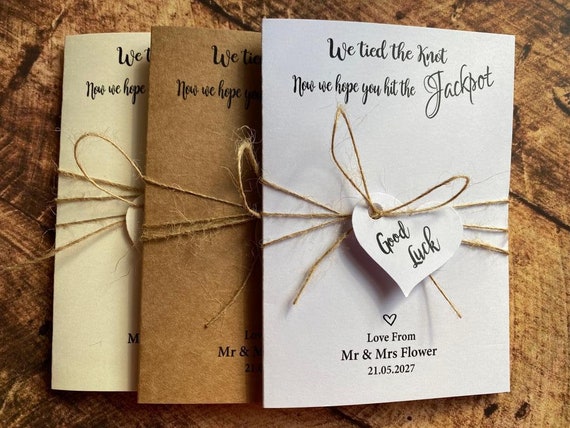 We tied
Now we hope
We tied
Now we hope you
Mr &
21
We tied the Knot
Now we hope you hit the Jackpot
Good
Luck
Love From
Mr & Mrs Flower
21.05.2027